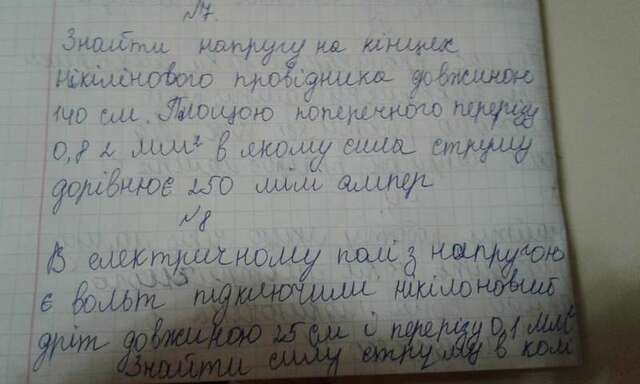 №7.
Знайти напругу на кінцях
нікілінового провідника довжиною
140 см. Площою поперечного перерізу
0,82 мм² в якому сила струму
дорівнює 250 мілі ампер
№8
В електричному полі з напругою
є вольт підключили нікілоновий
дріт довжиною 25 см і перерізу 0,1 мм²
Знайти силу струму в колі